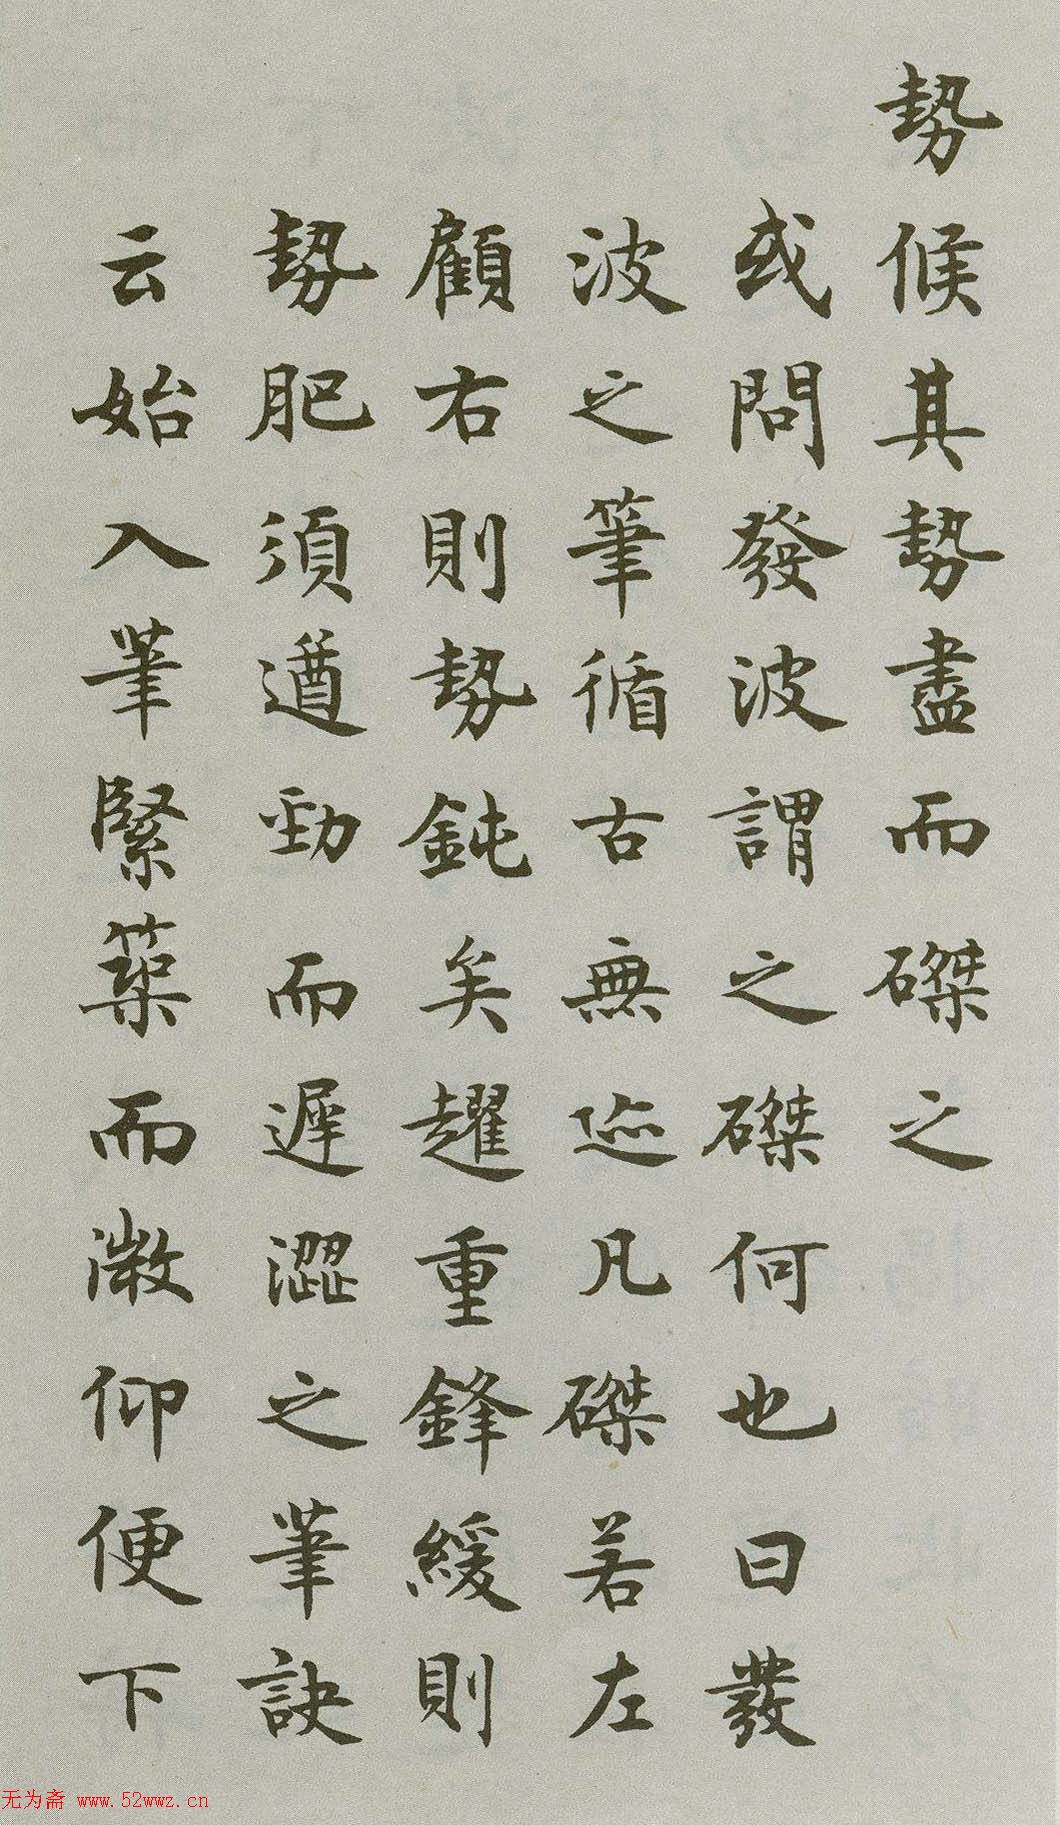 勢候其勢盡而磔之
或問發波謂之磔何也曰發
波之筆循古無迹凡磔若左
顧右則勢鈍矣趯重鋒緩則
勢肥須遒勁而遲澀之筆訣
云始入筆緊築而微仰便下
无为斋 www.52wwz.cn